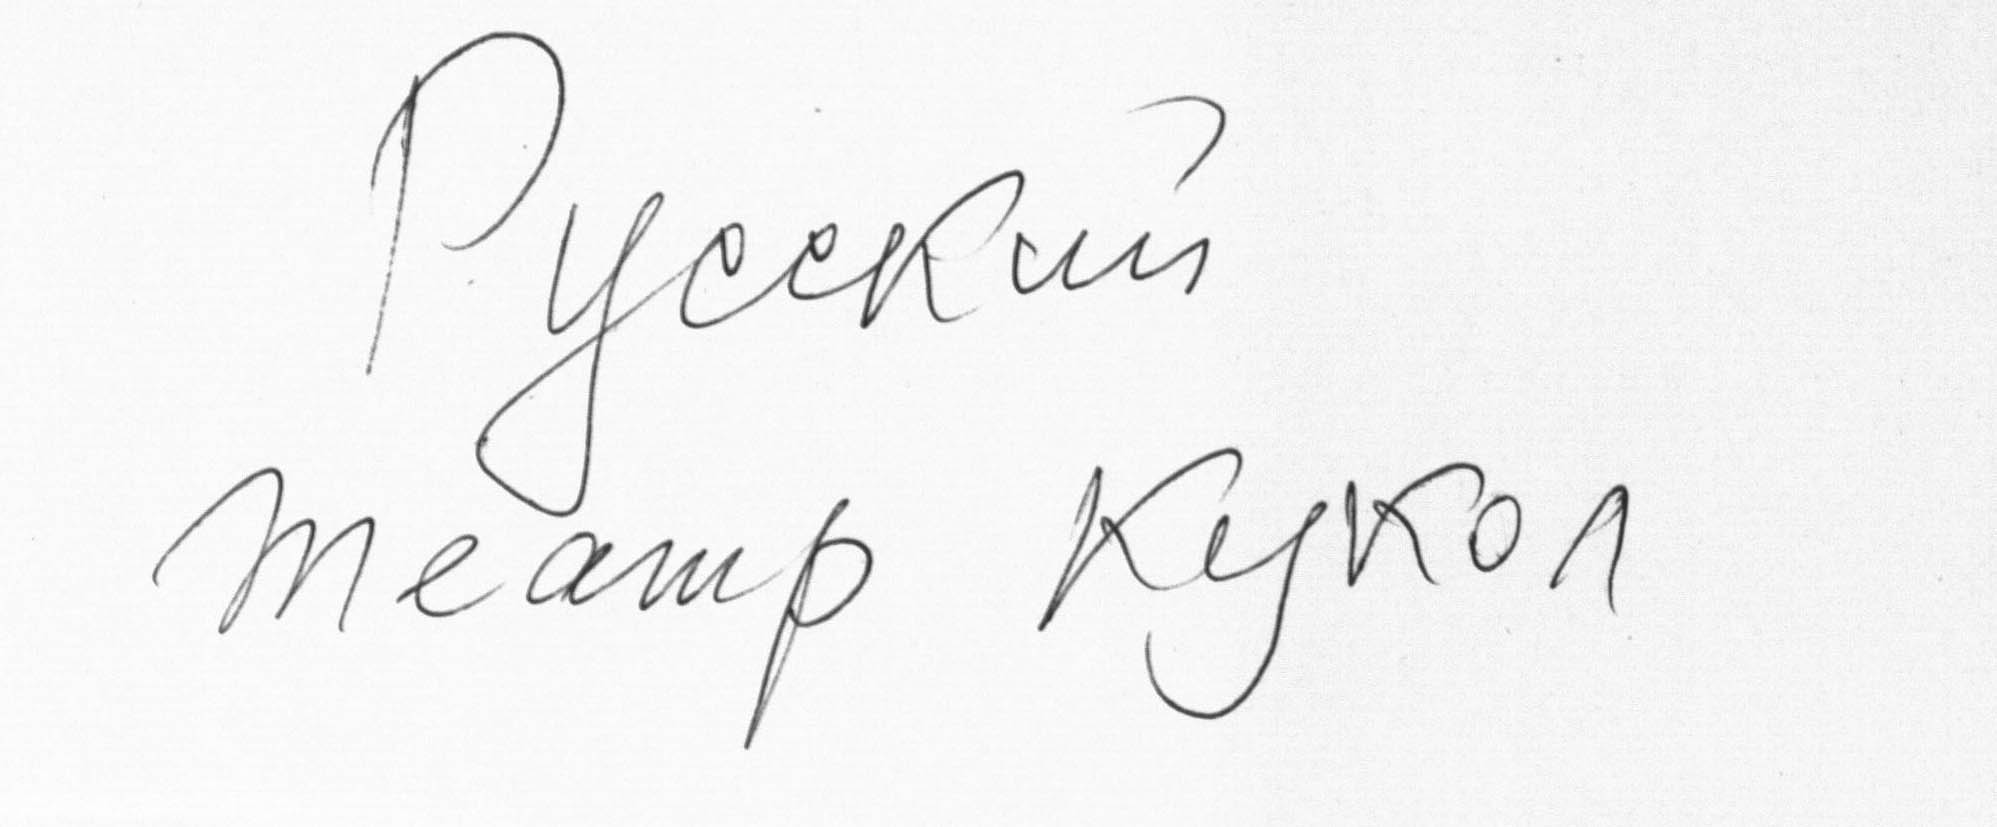 Русский
театр кукол